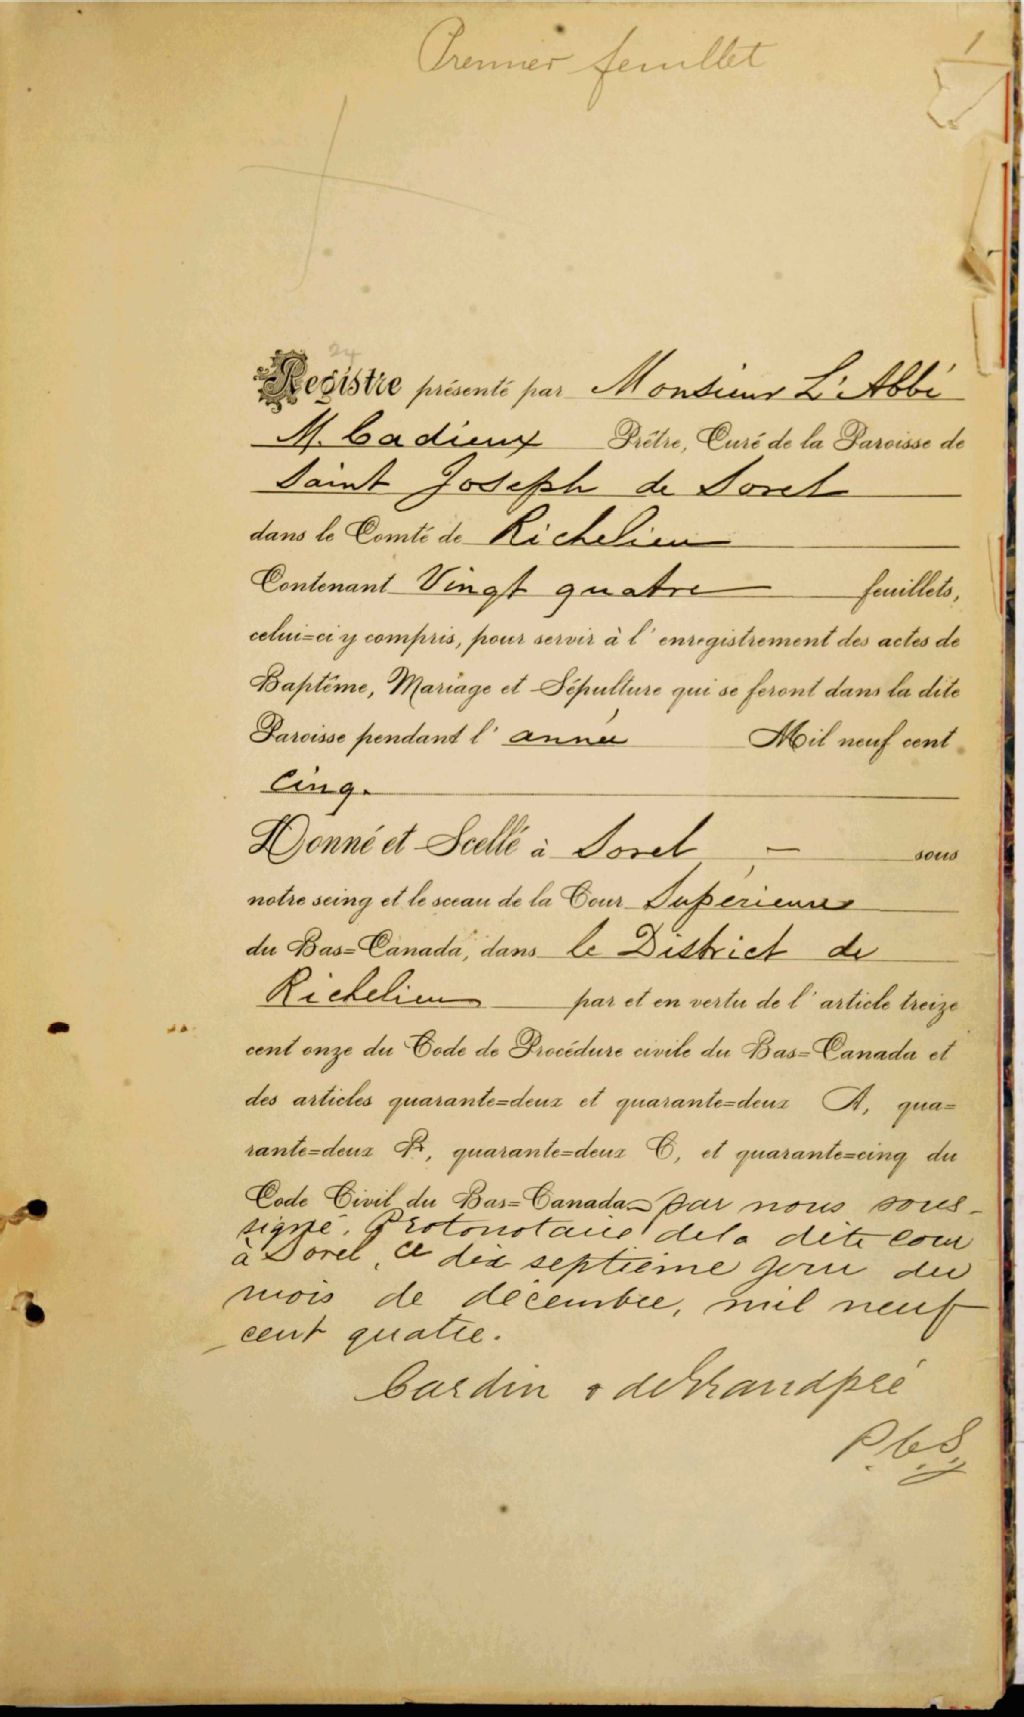 Premier feuillet
1
24
Registre présenté par Monsieur L'Abbé
M. Cadieux Prêtre, Curé de la Paroisse de
Saint Joseph de Sorel
dans le Comté de Richelieu
Contenant Vingt quatre feuillets,
celui=ci y compris, pour servir à l'enregistrement des actes de
Baptême, Mariage et Sépulture qui se feront dans la dite
Paroisse pendant l'année Mil neuf cent
cinq.
Donné et Scellé à Sorel — sous
notre seing et le sceau de la Cour Supérieure
du Bas=Canada, dans le District de
Richelieu par et en vertu de l'article treize
cent onze du Code de Procédure civile du Bas=Canada et
des articles quarante=deux et quarante=deux A, qua=
rante=deux B, quarante=deux C, et quarante=cinq du
Code Civil du Bas=Canada par nous sous-
signé, Protonotaire de la dite cour
à Sorel, ce dix septième jour du
mois de décembre, mil neuf
cent quatre.
Cardin & deGrandpré
P.C.S.